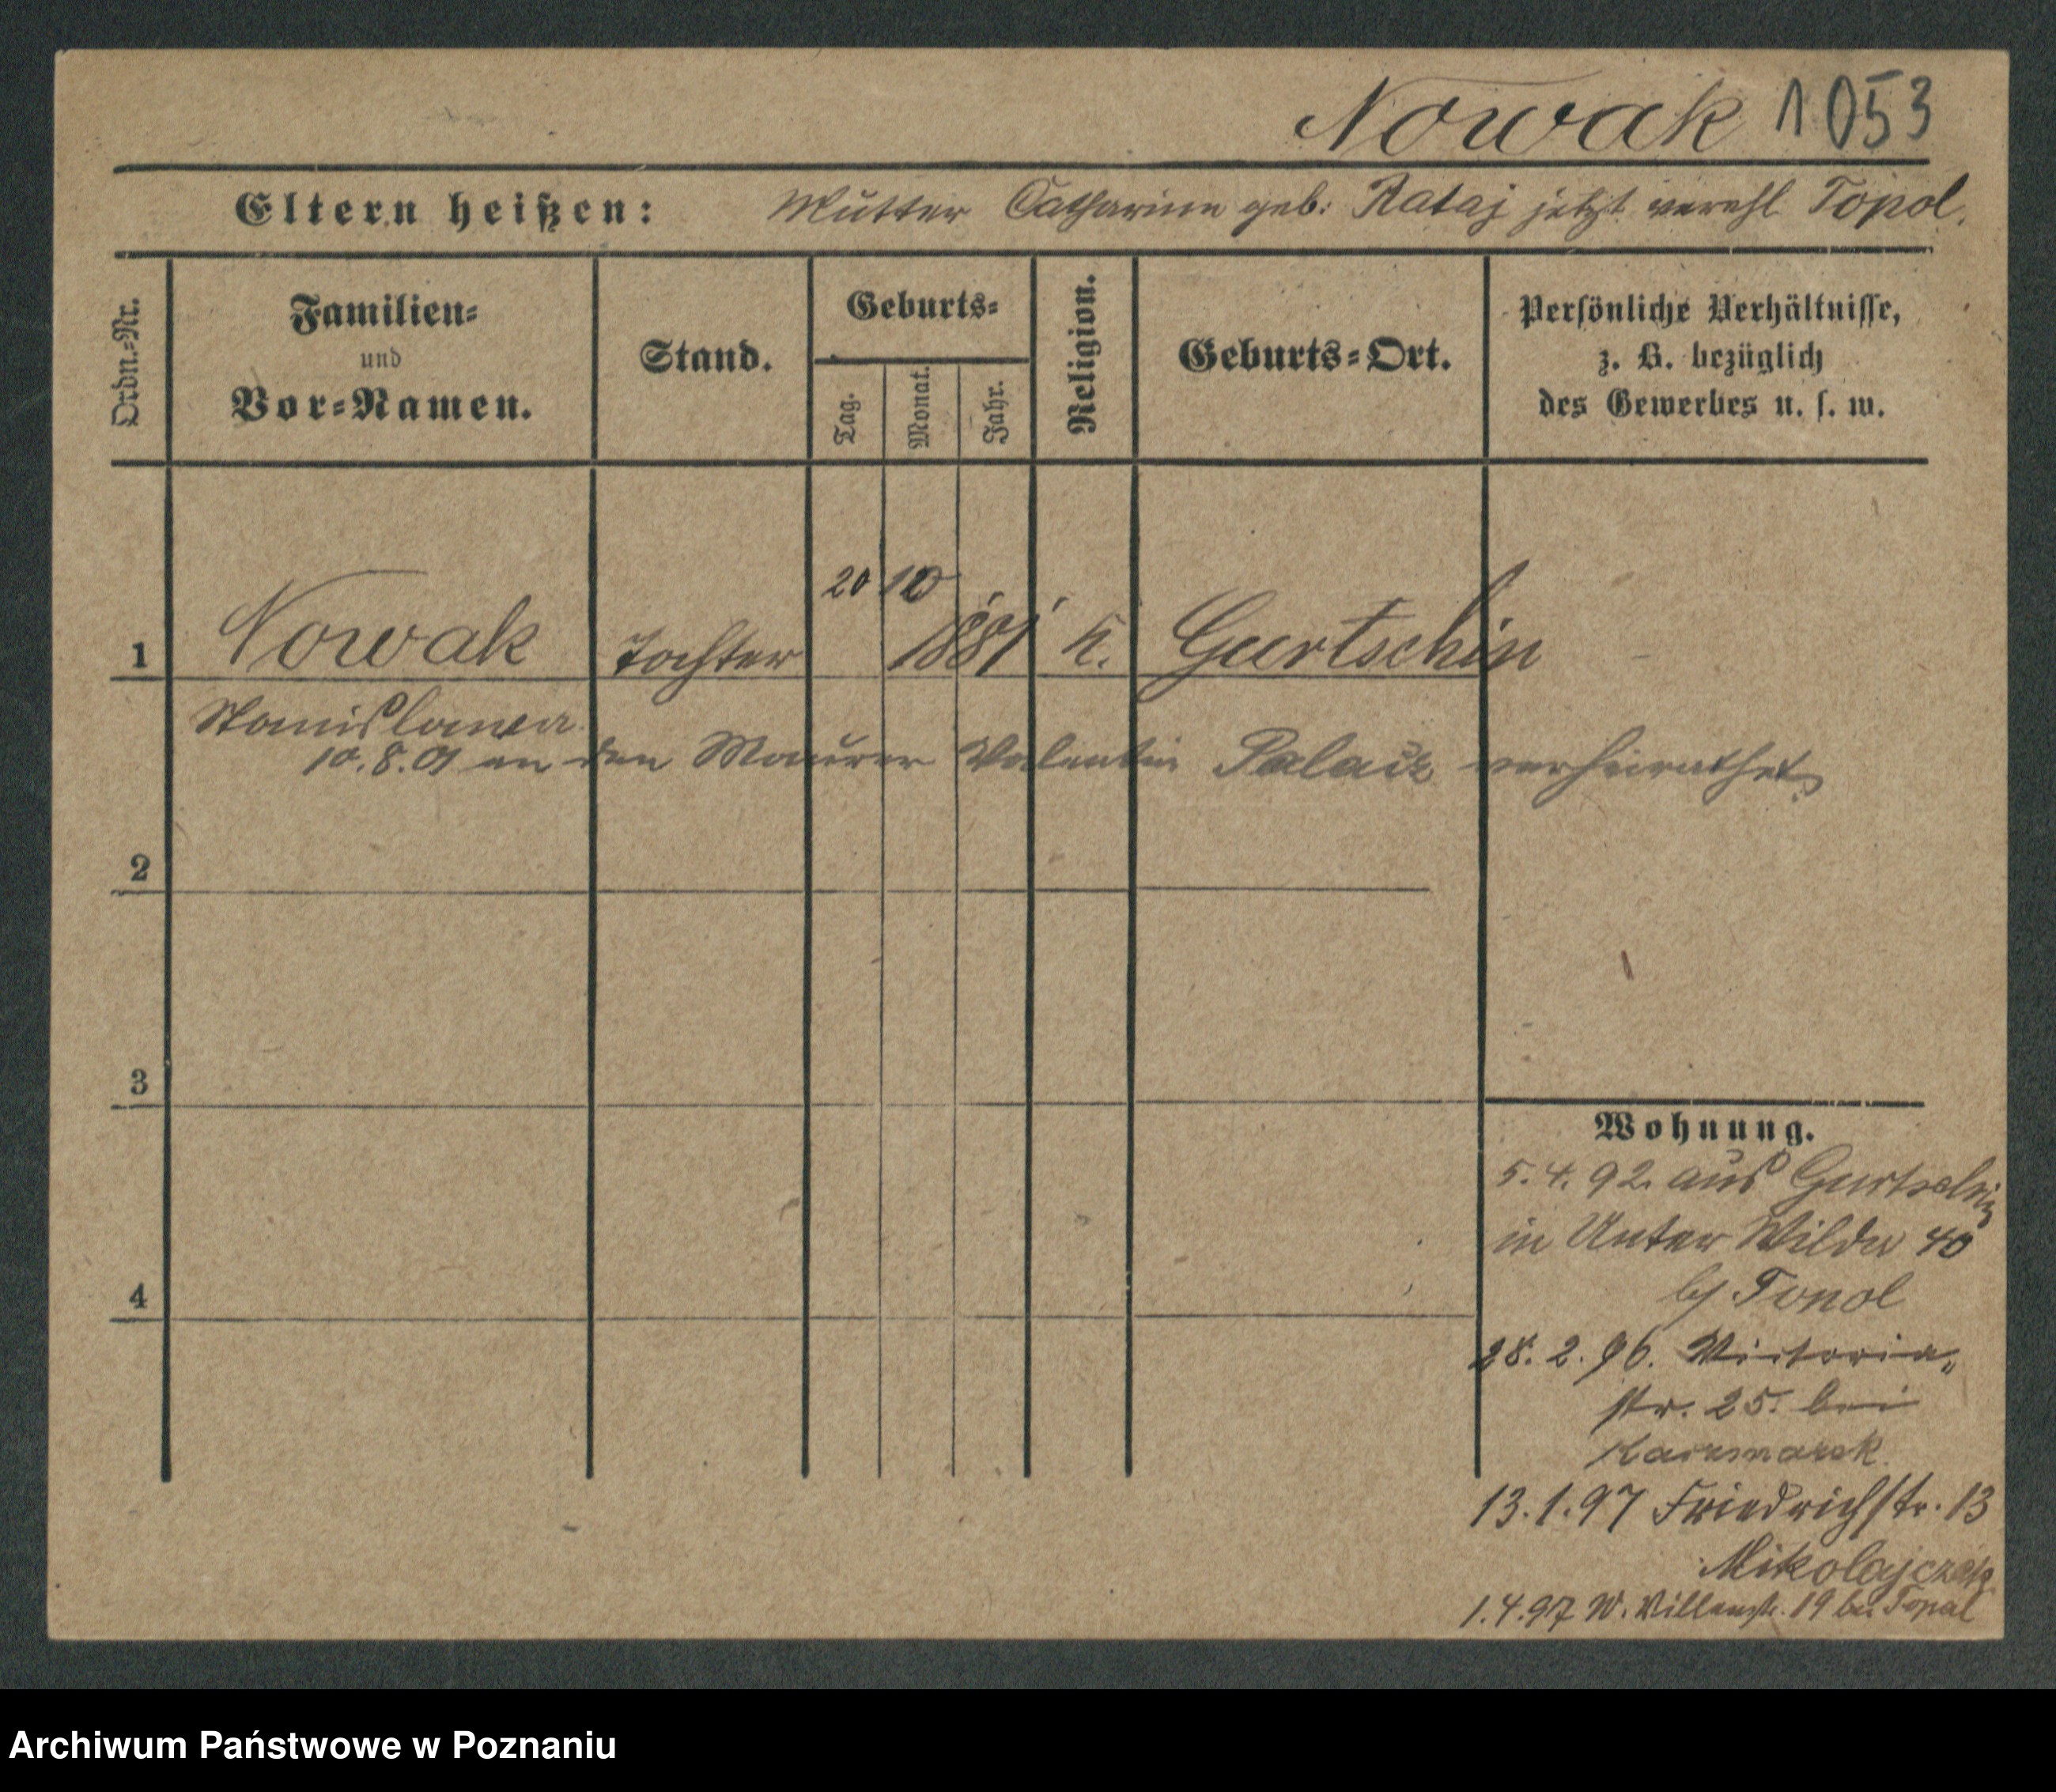 Nowak 1053
Eltern heißen: Mutter Catharina geb: Rataj jetzt verehl Topol.
Ordn.-Nr.
Familien-
und
Vor-Namen.
Stand.
Geburts-
Tag.
Monat.
Jahr.
Religion.
Geburts-Ort.
Persönliche Verhältnisse,
z. B. bezüglich
des Gewerbes u. s. w.
20 10
1 Nowak Tochter 1881 k. Gurtschin
Stanislawa
10.8.01 an den Maurer Valentin verheirathet
2
3
4
Wohnung.
5.4.92. aus Gurtschin
in Unter Wilda 40
b/ Topol
28.2.96. Victoria-
str. 25. bei
Kaczmarek.
13.1.97 Friedrichstr. 13
Mikolajczak
1.4.97 W. Villenstr. 19 bei Topol
Archiwum Państwowe w Poznaniu